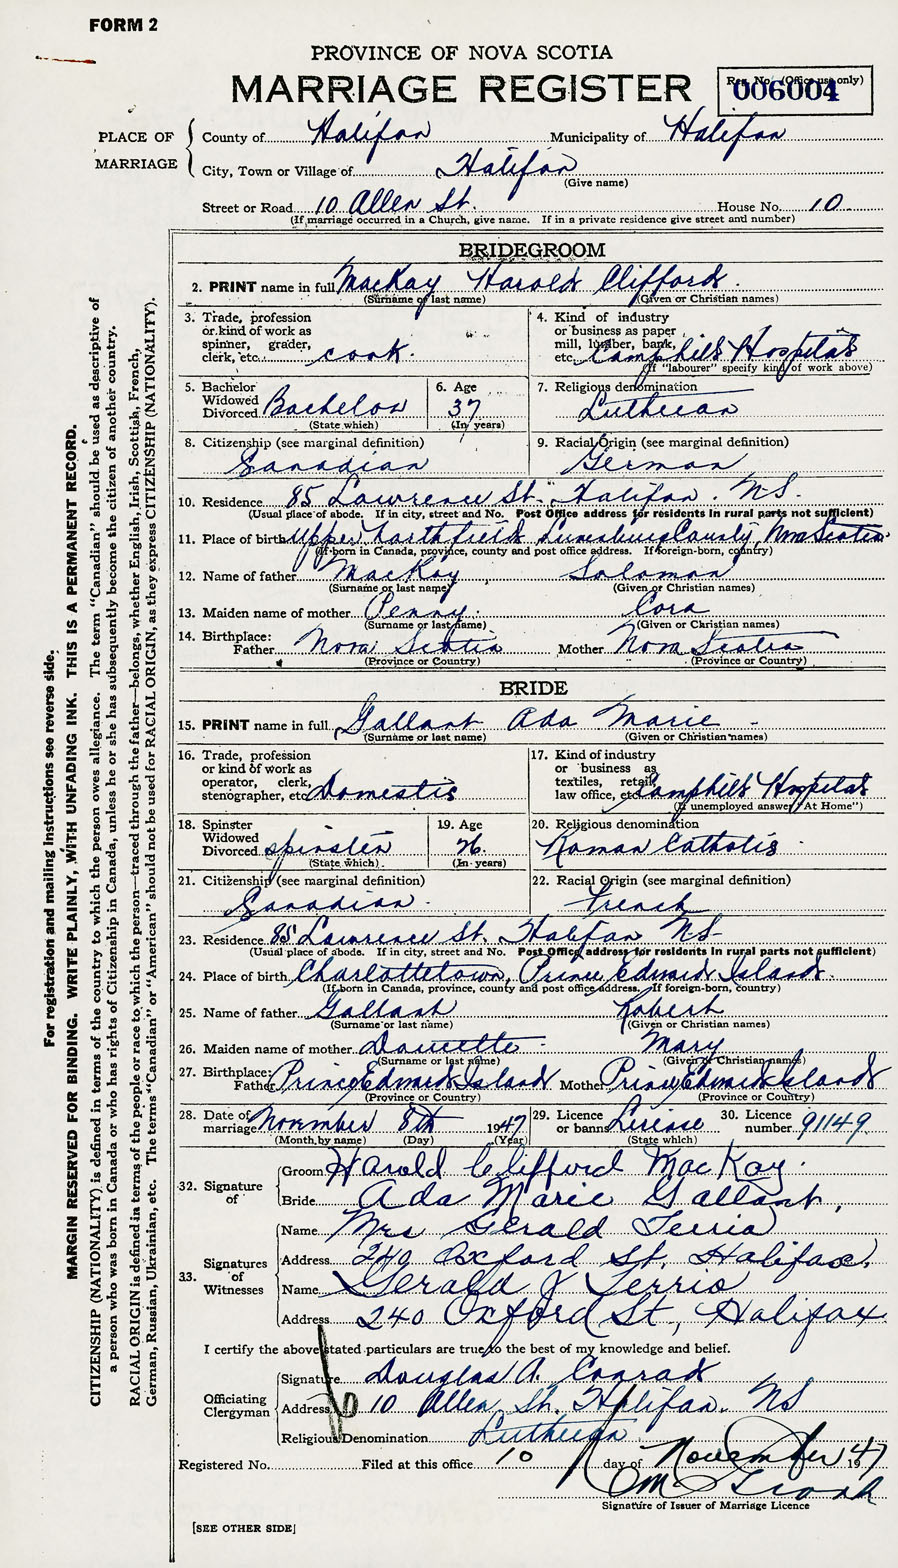 FORM 2
PROVINCE OF NOVA SCOTIA
MARRIAGE REGISTER
Reg. No. (Office use only)
006004
PLACE OF MARRIAGE
County of Halifax Municipality of Halifax
City, Town or Village of Halifax
(Give name)
Street or Road 10 Allen St. House No. 10
(If marriage occurred in a Church, give name. If in a private residence give street and number)
BRIDEGROOM
2. PRINT name in full MacKay Harold Clifford
(Surname or last name) (Given or Christian names)
3. Trade, profession or kind of work as spinner, grader, clerk, etc. cook.
4. Kind of industry or business as paper mill, lumber, bank, etc. Camphill Hospital
(If "labourer" specify kind of work above)
5. Bachelor Widowed Divorced Bachelor
(State which)
6. Age 37
(In years)
7. Religious denomination
Lutheran
8. Citizenship (see marginal definition)
Canadian
9. Racial Origin (see marginal definition)
German
10. Residence 85 Lawrence St. Halifax. N.S.
(Usual place of abode. If in city, street and No. Post Office address for residents in rural parts not sufficient)
11. Place of birth Upper Northfield Lunenburg County, Nova Scotia
(If born in Canada, province, county and post office address. If foreign-born, country)
12. Name of father MacKay Solomon
(Surname or last name) (Given or Christian names)
13. Maiden name of mother Penny. Cora
(Surname or last name) (Given or Christian names)
14. Birthplace:
Father Nova Scotia Mother Nova Scotia
(Province or Country) (Province or Country)
BRIDE
15. PRINT name in full Gallant Ada Marie
(Surname or last name) (Given or Christian names)
16. Trade, profession or kind of work as operator, clerk, stenographer, etc. Domestic
17. Kind of industry or business as textiles, retail, law office, etc. Camphill Hospital
(If unemployed answer "At Home")
18. Spinster Widowed Divorced spinster
(State which)
19. Age 26.
(In years)
20. Religious denomination
Roman Catholic
21. Citizenship (see marginal definition)
Canadian.
22. Racial Origin (see marginal definition)
French
23. Residence 85 Lawrence St. Halifax N.S.
(Usual place of abode. If in city, street and No. Post Office address for residents in rural parts not sufficient)
24. Place of birth Charlottetown, Prince Edward Island.
(If born in Canada, province, county and post office address. If foreign-born, country)
25. Name of father Gallant Robert
(Surname or last name) (Given or Christian names)
26. Maiden name of mother Doucette Mary
(Surname or last name) (Given or Christian names)
27. Birthplace:
Father Prince Edward Island Mother Prince Edward Island
(Province or Country) (Province or Country)
28. Date of marriage November 8th 1947
(Month by name) (Day) (Year)
29. Licence or banns License
(State which)
30. Licence number 91149
32. Signature of
Groom Harold Clifford MacKay.
Bride Ada Marie Gallant,
33. Signatures of Witnesses
Name Mrs Gerald Terrio
Address 240 Oxford St, Halifax,
Name Gerald J Terrio
Address 240 Oxford St, Halifax
I certify the above stated particulars are true to the best of my knowledge and belief.
Officiating Clergyman
Signature Douglas A. Conrad
Address 10 Allen St. Halifax. NS
Religious Denomination Lutheran
Registered No. Filed at this office 10 day of November 1947
Signature of Issuer of Marriage Licence
[SEE OTHER SIDE]
For registration and mailing instructions see reverse side.
MARGIN RESERVED FOR BINDING. WRITE PLAINLY, WITH UNFADING INK. THIS IS A PERMANENT RECORD.
CITIZENSHIP (NATIONALITY) is defined in terms of the country to which the person owes allegiance. The term "Canadian" should be used as descriptive of
a person who was born in Canada or who has rights of Citizenship in Canada, unless he or she has subsequently become the citizen of another country.
RACIAL ORIGIN is defined in terms of the people or race to which the person—traced through the father—belongs, whether English, Irish, Scottish, French,
German, Russian, Ukrainian, etc. The terms "Canadian" or "American" should not be used for RACIAL ORIGIN, as they express CITIZENSHIP (NATIONALITY).